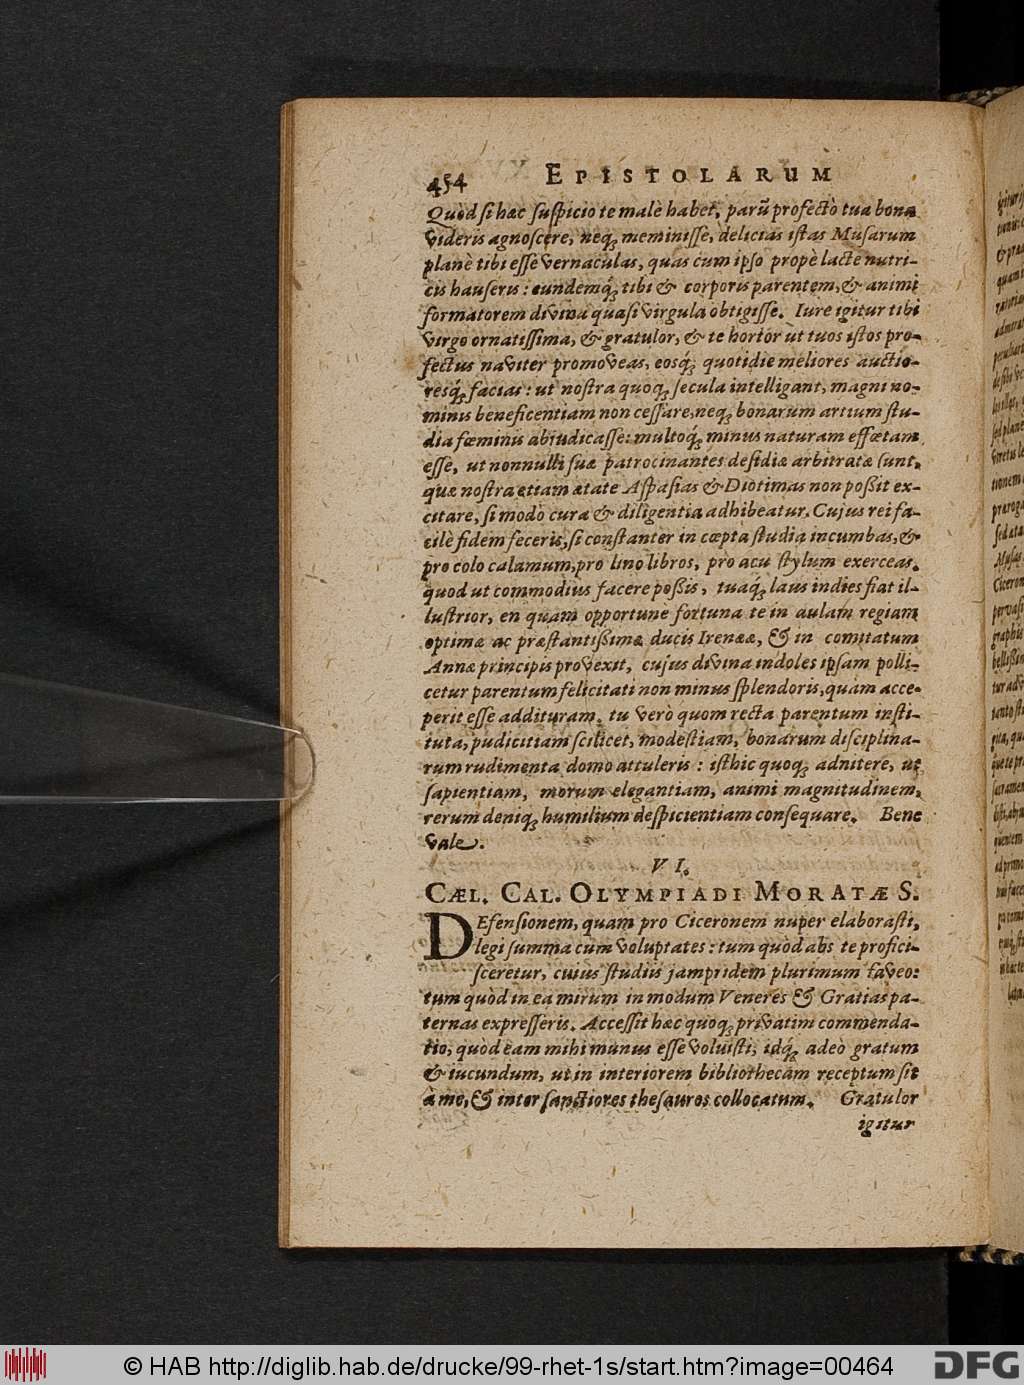 454 EPISTOLARUM
Quòd si hæc suspicio te malè habet, parũ profectò tua bona
videris agnoscere, neqꝫ meminisse, delicias istas Musarum
planè tibi esse vernaculas, quas cum ipso propè lacte nutri-
cis hauseris: eundemqꝫ́ tibi & corporis parentem, & animi
formatorem divina quasi virgula obtigisse. Iure igitur tibi
virgo ornatissima, & gratulor, & te hortor ùt tuos istos pro-
fectus naviter promoveas, eosqꝫ́ quotidie meliores auctio-
resqꝫ́ facias: ut nostra quoqꝫ secula intelligant, magni no-
minis beneficentiam non cessare, neqꝫ bonarum artium stu-
dia fœminis abiudicasse: multoqꝫ́ minus naturam effœtam
esse, ut nonnulli suæ patrocinantes desidiæ arbitratæ sunt,
quæ nostra etiam ætate Aspasias & Diotimas non poßit ex-
citare, si modò cura & diligentia adhibeatur. Cujus rei fa-
cilè fidem feceris, si constanter in cœpta studia incumbas, &
pro colo calamum, pro lino libros, pro acu stylum exerceas.
quod ut commodius facere poßis, tuaqꝫ́ laus indies fiat il-
lustrior, en quàm opportunè fortuna te in aulam regiam
optimæ ac præstantißimæ ducis Irenææ, & in comitatum
Annæ principis provexit, cujus divina indoles ipsam polli-
cetur parentum felicitati non minus splendoris, quàm acce-
perit esse addituram. tu verò quom recta parentum insti-
tuta, pudicitiam scilicet, modestiam, bonarum disciplina-
rum rudimenta domo attuleris: isthic quoqꝫ adnitere, ut
sapientiam, morum elegantiam, animi magnitudinem,
rerum deniqꝫ humilium despicientiam consequare. Bene
vale.
VI.
CÆL. CAL. OLYMPIADI MORATÆ S.
DEfensionem, quam pro Cicerone​m nuper elaborasti,
legi summa cum voluptates: tum quòd abs te profici-
sceretur, cuius studiis jampridem plurimum faveo:
tum quòd in ea mirum in modum Veneres & Gratias pa-
ternas expresseris. Accessit hæc quoqꝫ privatim commenda-
tio, quòd eam mihi munus esse voluisti, idqꝫ́ adeò gratum
& iucundum, ut in interiorem bibliothecam receptum sit
à me, & inter sanctiores thesauros collocatum. Gratulor
igitur
© HAB http://diglib.hab.de/drucke/99-rhet-1s/start.htm?image=00464
DFG